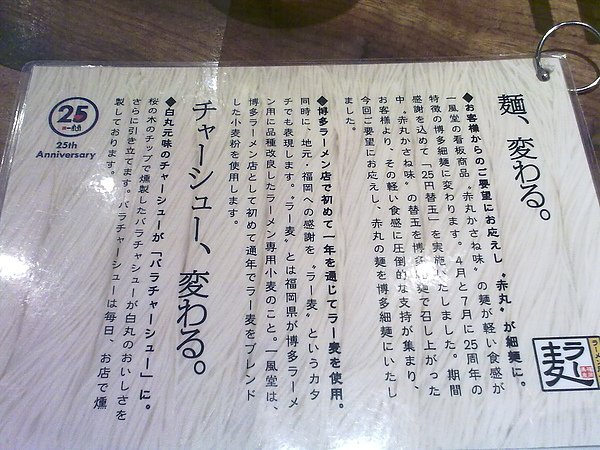 麺、変わる。
◆お客様からのご要望にお応えし〝赤丸〟が細麺に。
一風堂の看板商品〝赤丸かさね味〟の麺が軽い食感が
特徴の博多細麺に変わります。4月と7月に25周年の
感謝を込めて「25円替玉」を実施いたしました。期間
中、〝赤丸かさね味〟の替玉を博多細麺で召し上がった
お客様より、その軽い食感に圧倒的な支持が集まり、
今回ご要望にお応えし、赤丸の麺を博多細麺にいたし
ました。
◆博多ラーメン店で初めて一年を通じてラー麦を使用。
同時に、地元・福岡への感謝を〝ラー麦〟というカタ
チでも表現します。〝ラー麦〟とは福岡県が博多ラーメ
ン用に品種改良したラーメン専用小麦のこと。一風堂は、
博多ラーメン店として初めて通年でラー麦をブレンド
した小麦粉を使用します。
チャーシュー、変わる。
◆白丸元味のチャーシューが「バラチャーシュー」に。
桜の木のチップで燻製したバラチャーシューが白丸のおいしさを
さらに引き立てます。バラチャーシューは毎日、お店で燻
製しております。
ラー麦
25
一風堂
25th
Anniversary